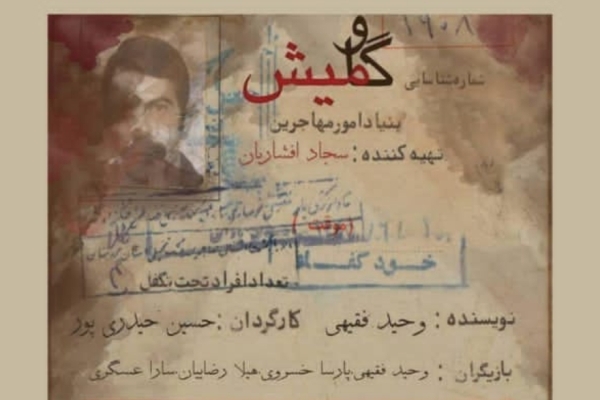 ۱۶۰۸
گاومیش
شماره شناسایی
بنیاد امور مهاجرین
تهیه کننده : سجاد افشاریان
(موقت)
خودکفا
تعداد افراد تحت تکفل
نویسنده : وحید فقیهی کارگردان : حسین حیدری پور
بازیگران : وحید فقیهی.پارسا خسروی.هیلا رضاییان.سارا عسگری